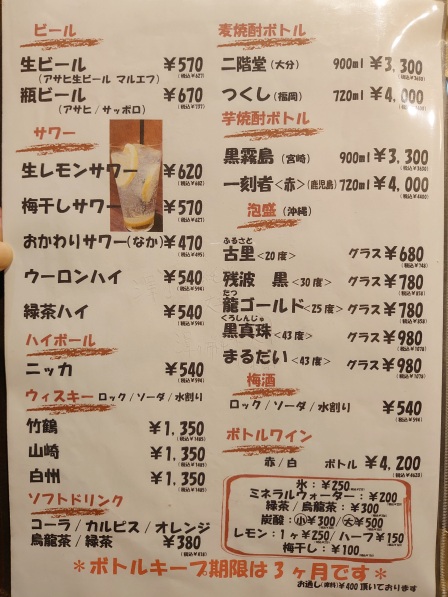 ビール
生ビール ￥570
(税込￥627)
(アサヒ生ビール マルエフ)
瓶ビール ￥670
(税込￥737)
(アサヒ / サッポロ)
サワー
生レモンサワー ￥620
(税込￥682)
梅干しサワー ￥570
(税込￥627)
おかわりサワー(なか) ￥470
ウーロンハイ ￥540
(税込￥594)
緑茶ハイ ￥540
(税込￥594)
ハイボール
ニッカ ￥540
(税込￥594)
ウィスキー ロック / ソーダ / 水割り
竹鶴 ￥1,350
(税込￥1485)
山崎 ￥1,350
(税込￥1485)
白州 ￥1,350
(税込￥1485)
ソフトドリンク
コーラ / カルピス / オレンジ
烏龍茶 / 緑茶 ￥380
(税込￥418)
麦焼酎ボトル
二階堂(大分) 900ml ￥3,300
つくし(福岡) 720ml ￥4,000
芋焼酎ボトル
黒霧島(宮崎) 900ml ￥3,300
一刻者<赤>(鹿児島) 720ml ￥4,000
泡盛(沖縄)
ふるさと
古里<20度> グラス￥680
(税込￥748)
残波 黒<30度> グラス￥780
(税込￥858)
たつ
龍ゴールド<25度> グラス￥780
(税込￥858)
くろしんじゅ
黒真珠<43度> グラス￥980
(税込￥1078)
まるだい<43度> グラス￥980
(税込￥1078)
梅酒
ロック / ソーダ / 水割り ￥540
(税込￥594)
ボトルワイン
赤 / 白 ボトル ￥4,200
(税込￥4620)
氷：￥250
ミネラルウォーター：￥200
緑茶 / 烏龍茶：￥300
炭酸：小￥300 / 大￥500
レモン：1ヶ￥250 / ハーフ￥150
梅干し：￥100
＊ボトルキープ期限は3ヶ月です＊
お通し(席料)￥400頂いております